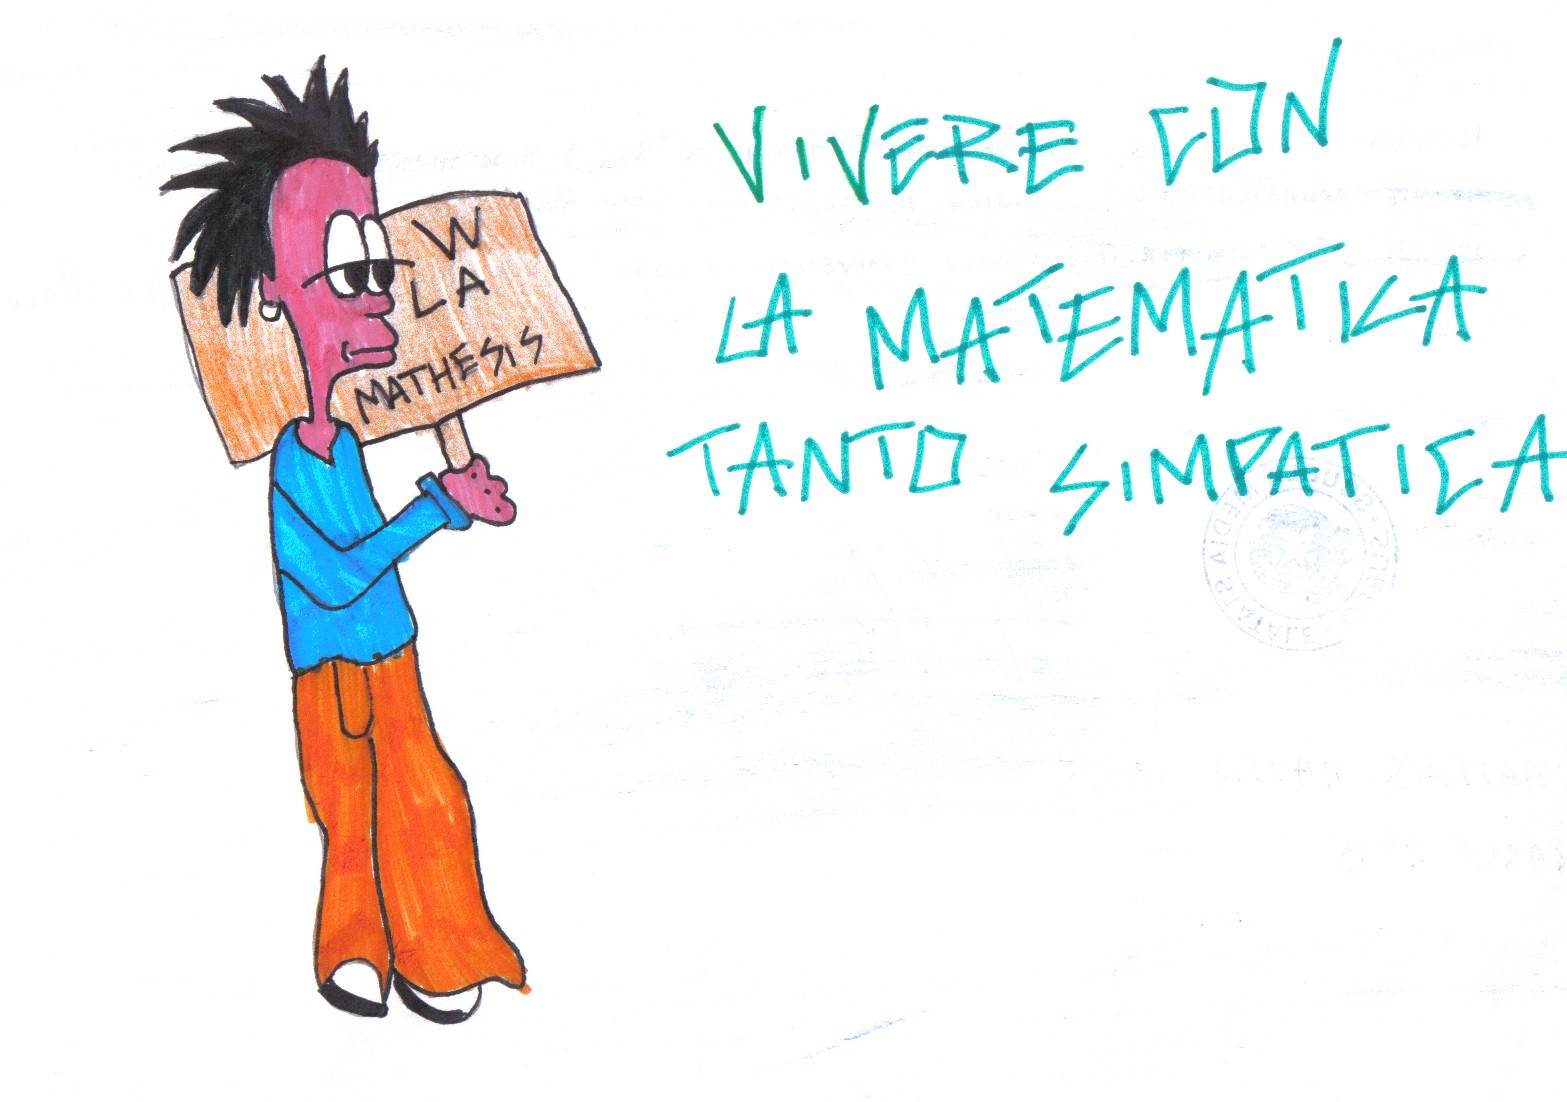 W
LA
MATHESIS
VIVERE CON
LA MATEMATICA
TANTO SIMPATICA
MEDIA STATALE